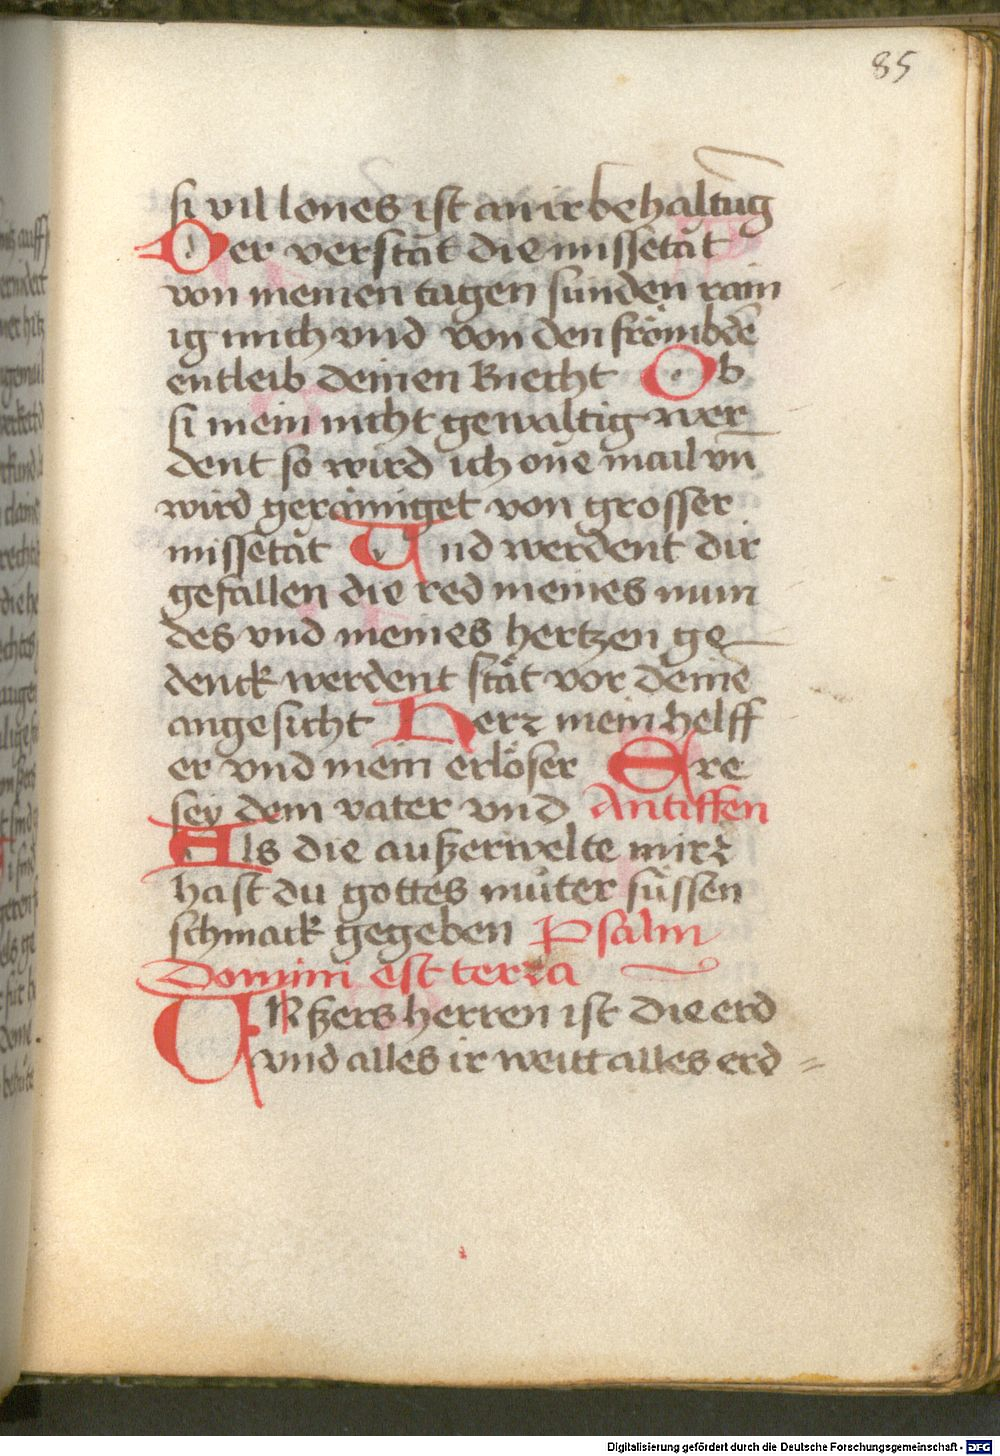 85
si vil lones ist an ir behaltūg
Wer verstāt die missetāt
von meinen tagen sünden rain
ig mich vnd von den frömbdē
entleib deinen knecht Ob
si mein nicht gewaltig wer
dent so wird ich one mail vn̄
wird gerainiget von grosser
missetāt Vnd werdent dir
gefallen die red meines mun
des vnd meines hertzen ge
denck werdent stāt vor deinē
angesicht Herr mein helff
er vnd mein erlöser Ere
sey dem vater vnd Antiffen
Als die außerwelte mirr
hast du gottes můter süssen
schmack gegeben Psalm
Domini est terra
VNßers herren ist die erd
vnd alles ir weitt alles erd =
Digitalisierung gefördert durch die Deutsche Forschungsgemeinschaft - DFG